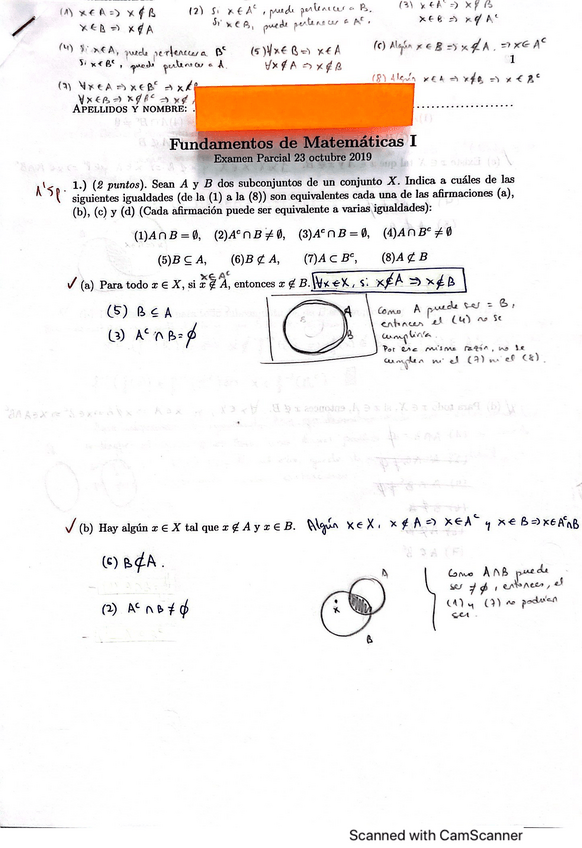 (1) x ∈ A ⇒ x ∉ B
x ∈ B ⇒ x ∉ A
(2) Si x ∈ Aᶜ, puede pertenecer a B.
Si x ∈ B, puede pertenecer a Aᶜ.
(3) x ∈ Aᶜ ⇒ x ∉ B
x ∈ B ⇒ x ∉ Aᶜ
(4) Si x ∈ A, puede pertenecer a Bᶜ
Si x ∈ Bᶜ, puede pertenecer a A.
(5) ∀x ∈ B ⇒ x ∈ A
∀x ∉ A ⇒ x ∉ B
(6) Algún x ∈ B ⇒ x ∉ A. ⇒ x ∈ Aᶜ
1
(7) ∀x ∈ A ⇒ x ∈ Bᶜ ⇒ x ∉ B
∀x ∈ B ⇒ x ∉ Bᶜ ⇒ x ∉
(8) Algún x ∈ A ⇒ x ∉ B ⇒ x ∈ Bᶜ
APELLIDOS Y NOMBRE:
Fundamentos de Matemáticas I
Examen Parcial 23 octubre 2019
1.) (2 puntos). Sean A y B dos subconjuntos de un conjunto X. Indica a cuáles de las
siguientes igualdades (de la (1) a la (8)) son equivalentes cada una de las afirmaciones (a),
(b), (c) y (d) (Cada afirmación puede ser equivalente a varias igualdades):
(1)A ∩ B = ∅, (2)Aᶜ ∩ B ≠ ∅, (3)Aᶜ ∩ B = ∅, (4)A ∩ Bᶜ ≠ ∅
(5)B ⊆ A, (6)B ⊄ A, (7)A ⊂ Bᶜ, (8)A ⊄ B
x ∈ Aᶜ
✓ (a) Para todo x ∈ X, si x ∉ A, entonces x ∉ B. ∀x ∈ X, si x ∉ A ⇒ x ∉ B
(5) B ⊆ A
(3) Aᶜ ∩ B = ∅
A
B
Como A puede ser = B,
entonces el (4) no se
cumpliría.
Por esa misma razón, no se
cumplen ni el (7) ni el (8).
✓ (b) Hay algún x ∈ X tal que x ∉ A y x ∈ B. Algún x ∈ X, x ∉ A ⇒ x ∈ Aᶜ y x ∈ B ⇒ x ∈ Aᶜ∩B
(6) B ⊄ A.
(2) Aᶜ ∩ B ≠ ∅
A
x
B
Como A∩B puede
ser ≠ ∅, entonces, el
(1) y (7) no podrían
ser.
Scanned with CamScanner